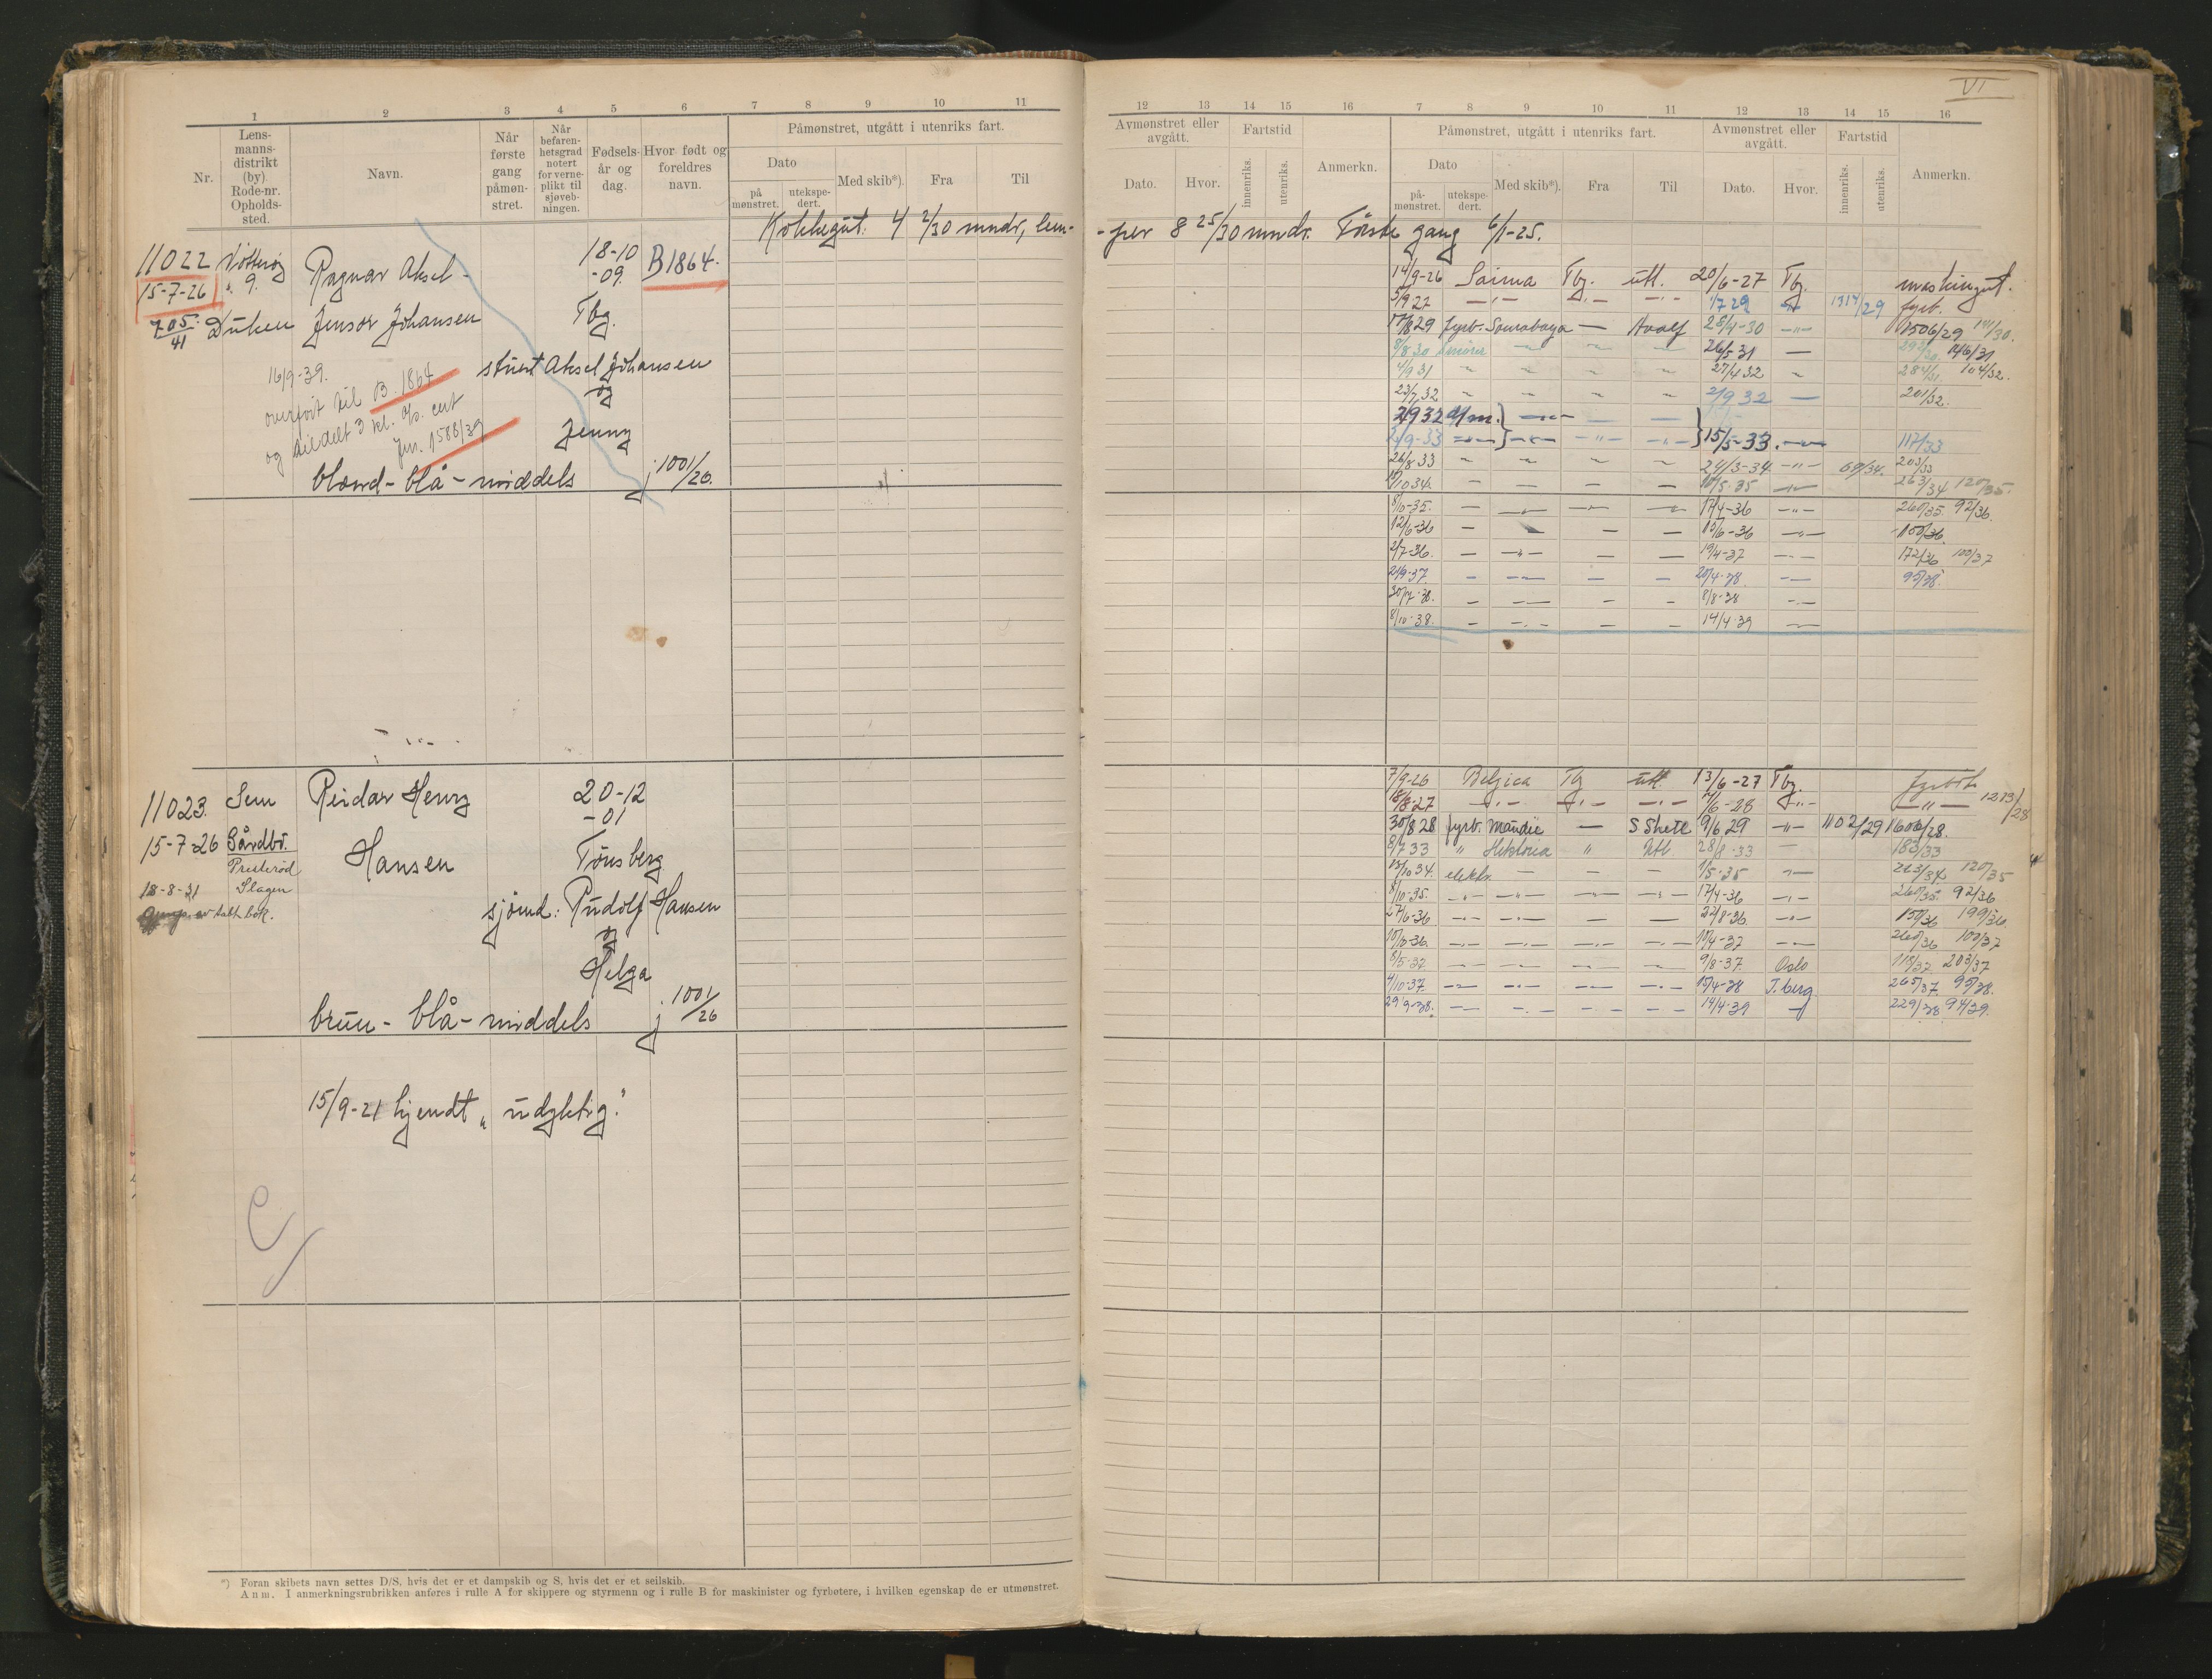 VI
1 2 3 4 5 6 7 8 9 10 11
Nr.
Lens-
manns-
distrikt
(by)
Rode-nr.
Opholds-
sted.
Navn.
Når
første
gang
påmøn-
stret.
Når
befaren-
hetsgrad
notert
for verne-
plikt til
sjøveb-
ningen.
Fødsels-
år og
dag.
Hvor født og
foreldres
navn.
Påmønstret, utgått i utenriks fart.
Dato
på
mønstret.
utekspe-
dert.
Med skib*).
Fra
Til
12 13 14 15 16 7 8 9 10 11 12 13 14 15 16
Avmønstret eller
avgått.
Dato.
Hvor.
Fartstid
innenriks.
utenriks.
Anmerkn.
Påmønstret, utgått i utenriks fart.
Dato
på-
mønstret.
utekspe-
dert.
Med skib*).
Fra
Til
Avmønstret eller
avgått.
Dato.
Hvor.
Fartstid
innenriks.
utenriks.
Anmerkn.
Kokkegut: 4 2/30 mndr, lem-
-per 8 25/30 mndr. Første gang 6/1-25.
11022 Nøtterøy Ragnar Aksel - 18-10 B1864.
15-7-26 9. -09.
705/41 Duken Jensor Johansen Tbg.
16/9-39. stuert Aksel Johansen
overført til B. 1864 og
og tildelt 3 kl. cert Jenny
Jnr. 1588/39
blond - blå - middels j 1001/26.
14/9-26 Saima Tbg. utt. 20/6-27 Tbg. maskingut.
5/9 27 -"- -"- -"- 1/7 29 -"- 1314/29 fyrb.
17/8 29 fyrb. Sourabaya — Hvalf 28/4-30 -"- 1506/29 141/30.
8/8 30 smører ~ ~ ~ 26/5 31 — 292/30. 146/31
4/9 31 ~ ~ ~ ~ 27/4 32 ~ 284/31. 104/32.
23/7 32 ~ ~ ~ ~ 2/9 32 — 201/32.
2/9 32 d/m. } -"- — —
2/9-33 -"- } -"- -"- -"- } 15/5-33. -"- 117/33
26/8 33 ~ ~ ~ ~ 24/3-34 -"- 69/34. 203/33
10/10 34. - — — — 10/5-35 -"- 263/34 120/35.
8/10-35. — -"- -"- -"- 17/4-36 -"- 260/35. 92/36.
12/6-36 - — — 15/6-36 -"- 150/36.
2/7-36. — -"- — — 19/4-37 -"- 172/36 100/37
21/9-37. - -"- - — 20/4-38 -"- 95/38.
30/7-38. - -"- - — 8/8-38 -"-
8/10-38. - -"- - — 14/4-39 -"-
11023. Sem Reidar Henry 20-12
-01
15-7-26 Gårdbr. Hansen Tønsberg
Presterød
18-8-31 Slagen
sjømd: Rudolf Hansen
og
Helga
brun - blå - middels j 1001/26
15/9-21 kjendt „udyktig."
7/9-26 Belgica Tbg utt. 13/6-27 Tbg. fyrbøt
18/8-27 -"- -"- -"- 7/6-28 -"- -"- 1213/28
30/8 28 fyrb. Maudie — S Shetl 9/6 29 -"- 1102/29 1600/28.
8/7 33 " Hektoria " Utl 28/8-33 — 183/33
15/10 34. elektr. — — — 1/5-35 -"- 263/34. 120/35
8/10-35. -"- -"- -"- -"- 17/4-36 -"- 260/35. 92/36.
27/6-36 -"- -"- — — 22/8-36. -"- 150/36 199/36.
10/10-36. -"- -"- -"- -"- 10/4-37 -"- 260/36 100/37
8/5-37 -"- -"- -"- -"- 9/8-37. Oslo 115/37. 203/37
4/10-37. -"- -"- -"- -"- 15/4-38 T.berg. 265/37. 95/38.
29/9-38. -"- -"- - -"- 14/4-39 -"- 229/38 94/39.
*) Foran skibets navn settes D/S, hvis det er et dampskib og S, hvis det er et seilskib.
Anm. I anmerkningsrubrikken anføres i rulle A for skippere og styrmenn og i rulle B for maskinister og fyrbøtere, i hvilken egenskap de er utmønstret.